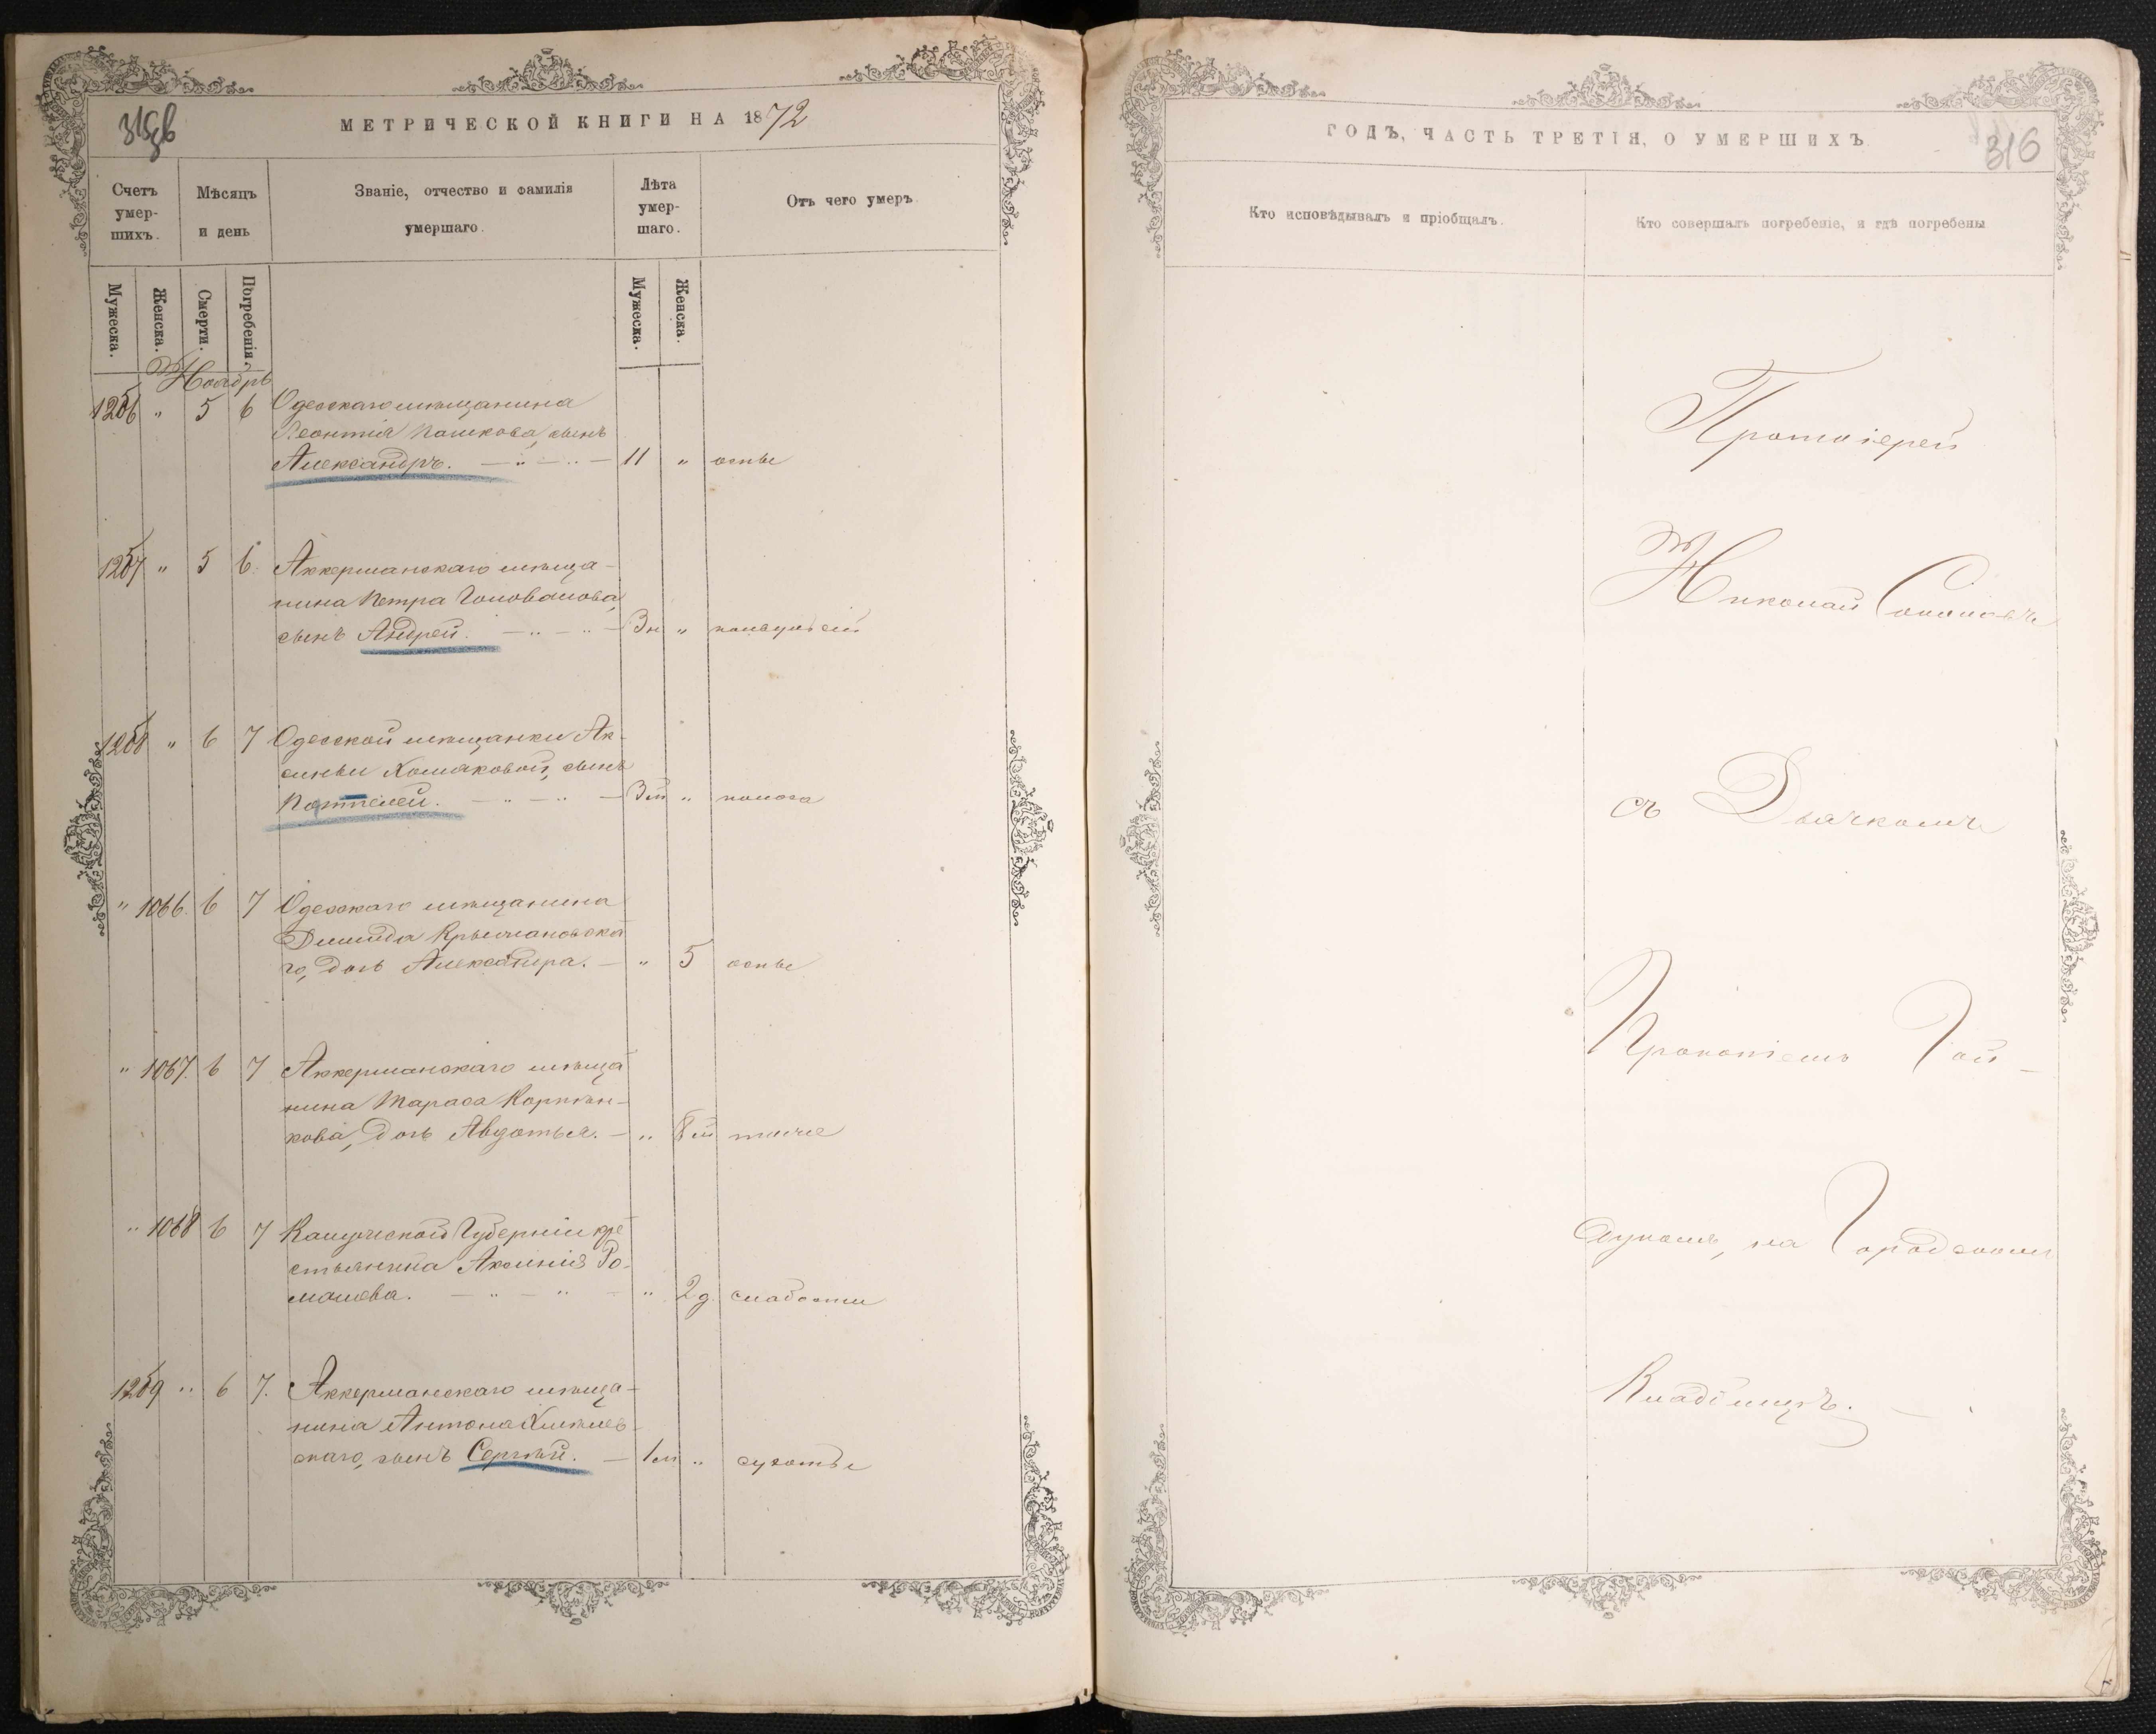 МЕТРИЧЕСКОЙ КНИГИ НА 1872
Счетъ умер-шихъ.
Мѣсяцъ и день
Званіе, отчество и фамилія умершаго.
Лѣта умер-шаго.
Отъ чего умеръ.
Мужеска.
Женска.
Смерти.
Погребенія.
Мужеска.
Женска.
Ноябрь
1256 " 5 6 Одесскаго мѣщанина
Леонтія Пашкова, сынъ
Александръ. — " — " — 11 " оспы
1257 " 5 6. Аккерманскаго мѣща-
нина Петра Головалова,
сынъ Андрей. — " — " — 3 н "
1258 " 6 7 Одесской мѣщанки Ак-
синьи Хомяковой, сынъ
Пантелей. — " — " — 3 м " поноса
" 1066. 6 7 Одесскаго мѣщанина
Демида Крыжановска
го, дочь Александра. — " 5 оспы
" 1067. 6 7 Аккерманскаго мѣща
нина Тараса
кова, дочь Авдотья. — " 8 м
" 1068 6 7 Калужской Губерніи кре
стьянина Аксинія Ро-
манова. — " — " — " 2 д. слабости
1259 " 6 7. Аккерманскаго мѣща-
нина Антона
скаго, сынъ Сергѣй. — 1 м " сухоты
ГОДЪ, ЧАСТЬ ТРЕТІЯ, О УМЕРШИХЪ
316
Кто исповѣдывалъ и пріобщалъ.
Кто совершалъ погребеніе, и гдѣ погребены
Протоіерей
Николай Соколовъ
съ Дьячкомъ
Прокопіемъ Гай-
дукомъ, на Городскомъ
Кладбищѣ. —